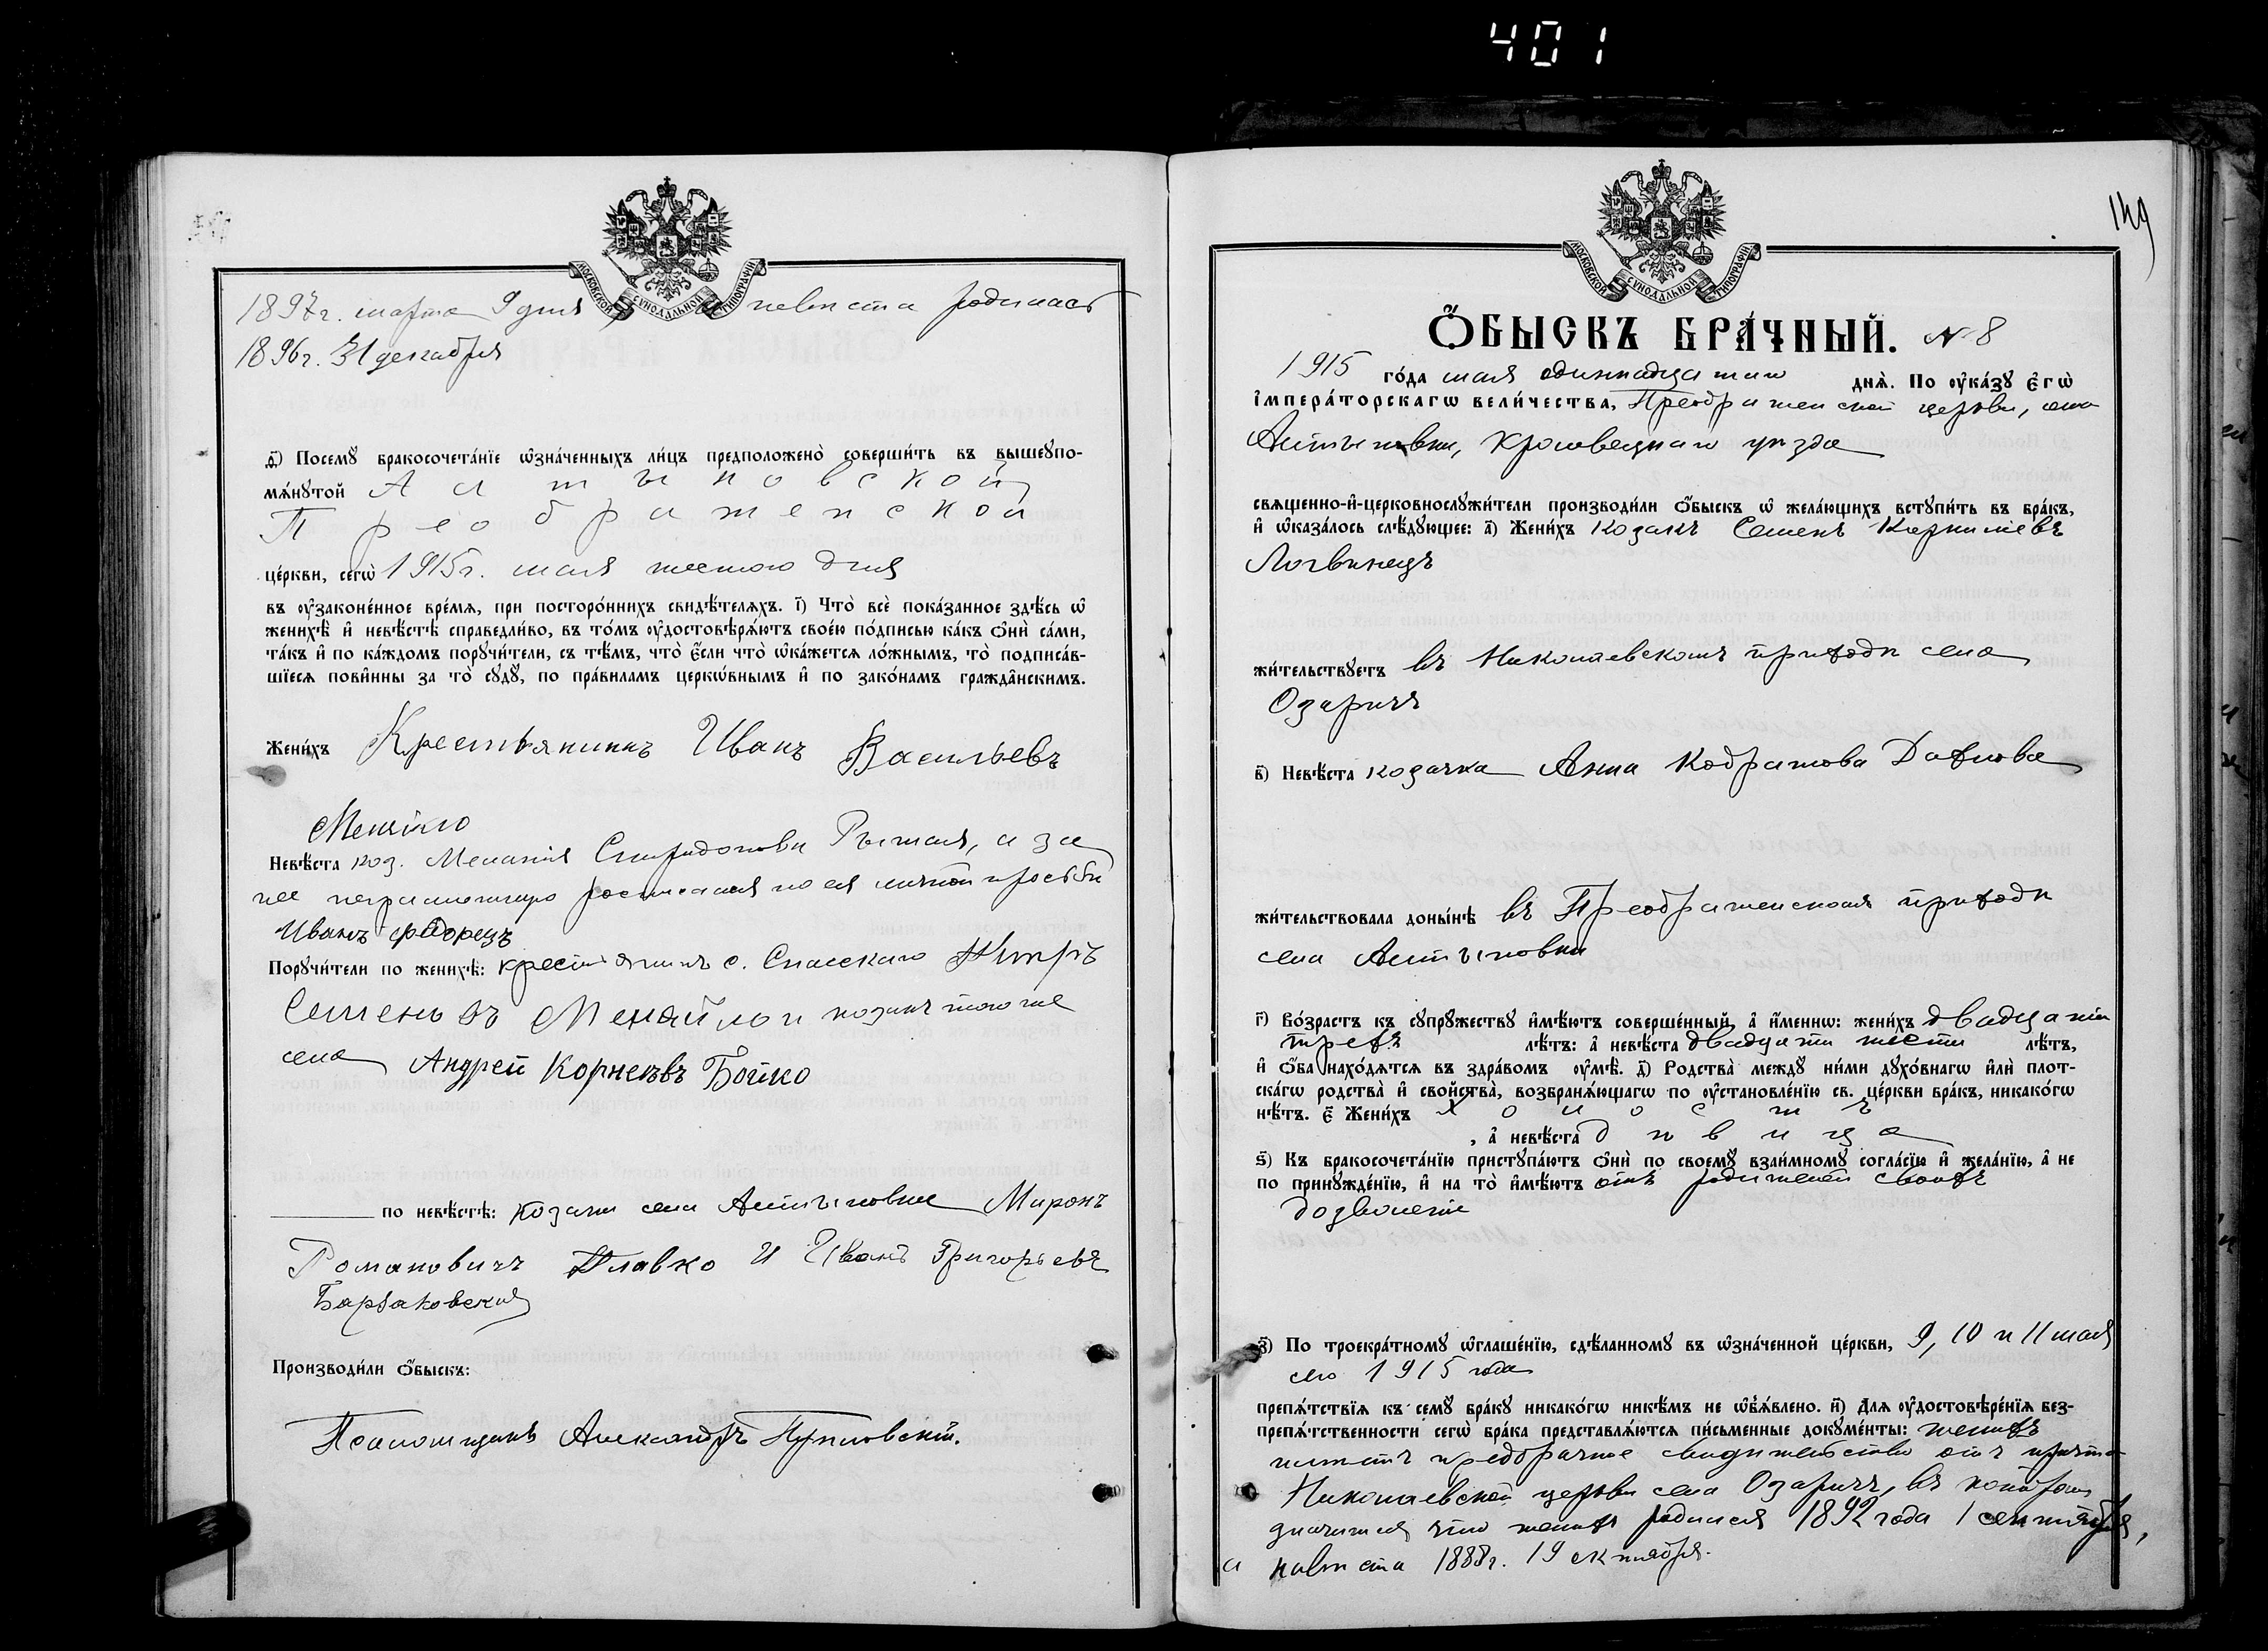 401
МОСКОВСКОЙ СѴНОДАЛЬНОЙ ТИПОГРАФІИ
1897г. марта 9 дня, а невѣста родилась
1896г. 31 декабря
ѳ҃) Посемꙋ̀ бракосочета́нїе ѡ҆зна́ченныхъ ли́цъ предположено̀ соверши́ть въ вышеꙋпо-
мѧ́нꙋтой Алтыновской
Преображенской
це́ркви, сегѡ̀ 1915г. мая шестого дня
въ ᲂу҆законе́нное вре́мѧ, при посторо́ннихъ свидѣ́телѧхъ. і҃) Что̀ всѐ пока́занное здѣ́сь ѡ҆
женихѣ̀ и҆ невѣ́стѣ справедли́во, въ то́мъ ᲂу҆достовѣрѧ́ютъ свое́ю по́дписью ка́къ ѻ҆нѝ са́ми,
та́къ и҆ по ка́ждомъ порꙋчи́тели, съ тѣ́мъ, что̀ є҆́сли что̀ ѡ҆ка́жетсѧ ло́жнымъ, то̀ подписа́в-
шїесѧ пови́нны за то̀ сꙋдꙋ̀, по пра́виламъ церкѡ́внымъ и҆ по зако́намъ гражда̑нскимъ.
Жени́хъ Крестьянинъ Иванъ Васильевъ
Меняйло
Невѣ́ста коз. Меланія Спиридонова Рыжая, а за
нее неграмотную росписался по ея личной просьбѣ
Иванъ
Порꙋчи́тели по женихѣ̀: крестьянинъ с. Спасскаго
Семеновъ Меняйло и козакъ того же
села Андрей Корнеевъ Бойко
по невѣ́стѣ: козаки села Алтыновки Миронъ
Романовичъ Плавко и Иванъ Григорьевъ
Барбаковскій
Производи́ли ѻ҆́быскъ:
Псаломщикъ Александръ
149
МОСКОВСКОЙ СѴНОДАЛЬНОЙ ТИПОГРАФІИ
Ѻ҆́БЫСКЪ БРА́ЧНЫЙ. № 8
1915 го́да мая одиннадцатаго днѧ̀. По ᲂу҆ка́зꙋ Є҆гѡ̀
І҆мпера́торскагѡ Вели́чества, Преображенской церкви, села
Алтыновки, Кролевецкаго уѣзда
свѧщенно-и҆-церковнослꙋжи́тели производи́ли ѻ҆́быскъ ѡ҆ жела́ющихъ встꙋпи́ть въ бра́къ,
и҆ ѡ҆каза́лось слѣ́дꙋющее: а҃) Жени́хъ козакъ Семенъ Корниліевъ
Логвинецъ
жи́тельствꙋетъ въ Николаевскомъ приходѣ села
Озаричъ
в҃) Невѣ́ста козачка Анна Кодратова Дахнова
жи́тельствовала доны́нѣ въ Преображенскомъ приходѣ
села Алтыновки
г҃) Во́зрастъ къ сꙋпрꙋ́жествꙋ и҆мѣ́ютъ соверше́нный, а҆ и҆́меннѡ: жени́хъ двадцати
трехъ лѣ́тъ: а҆ невѣ́ста двадцати шести лѣ́тъ,
и҆ ѻ҆́ба нахо́дѧтсѧ въ здра́вомъ ᲂу҆мѣ̀. д҃) Родства̀ междꙋ̀ ни́ми дꙋхо́внагѡ и҆лѝ плот-
ска́гѡ родства̀ и҆ свойства̀, возбранѧ́ющагѡ по ᲂу҆становле́нїю св. це́ркви бра́къ, никако́гѡ
нѣ́тъ. є҃) Жени́хъ холостъ
, а҆ невѣ́ста дѣвица
ѕ҃) Къ бракосочета́нїю пристꙋпа́ютъ ѻ҆нѝ по своемꙋ̀ взаи́мномꙋ согла́сїю и҆ жела́нїю, а҆ не
по принꙋжде́нїю, и҆ на то̀ и҆мѣ́ютъ отъ родителей своихъ
дозволеніе
з҃) По троекра́тномꙋ ѡ҆глаше́нїю, сдѣ́ланномꙋ въ ѡ҆зна́ченной це́ркви, 9, 10 и 11 мая
сего 1915 года
препѧ́тствїѧ къ семꙋ̀ бра́кꙋ никако́гѡ никѣ́мъ не ѡ҆б̾ѧ́влено. и҃) Длѧ ᲂу҆достовѣре́нїѧ без-
препѧ́тственности сегѡ̀ бра́ка представлѧ́ютсѧ пи́сьменные докꙋме́нты: женихъ
имѣетъ предбрачное свидѣтельство отъ причта
Николаевской церкви села Озаричъ, въ которомъ
значится что женихъ родился 1892 года 1 сентября,
а невѣста 1888г. 19 октября.